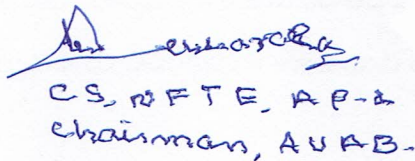 CS, NFTE, AP &
Chairman, AUAB.